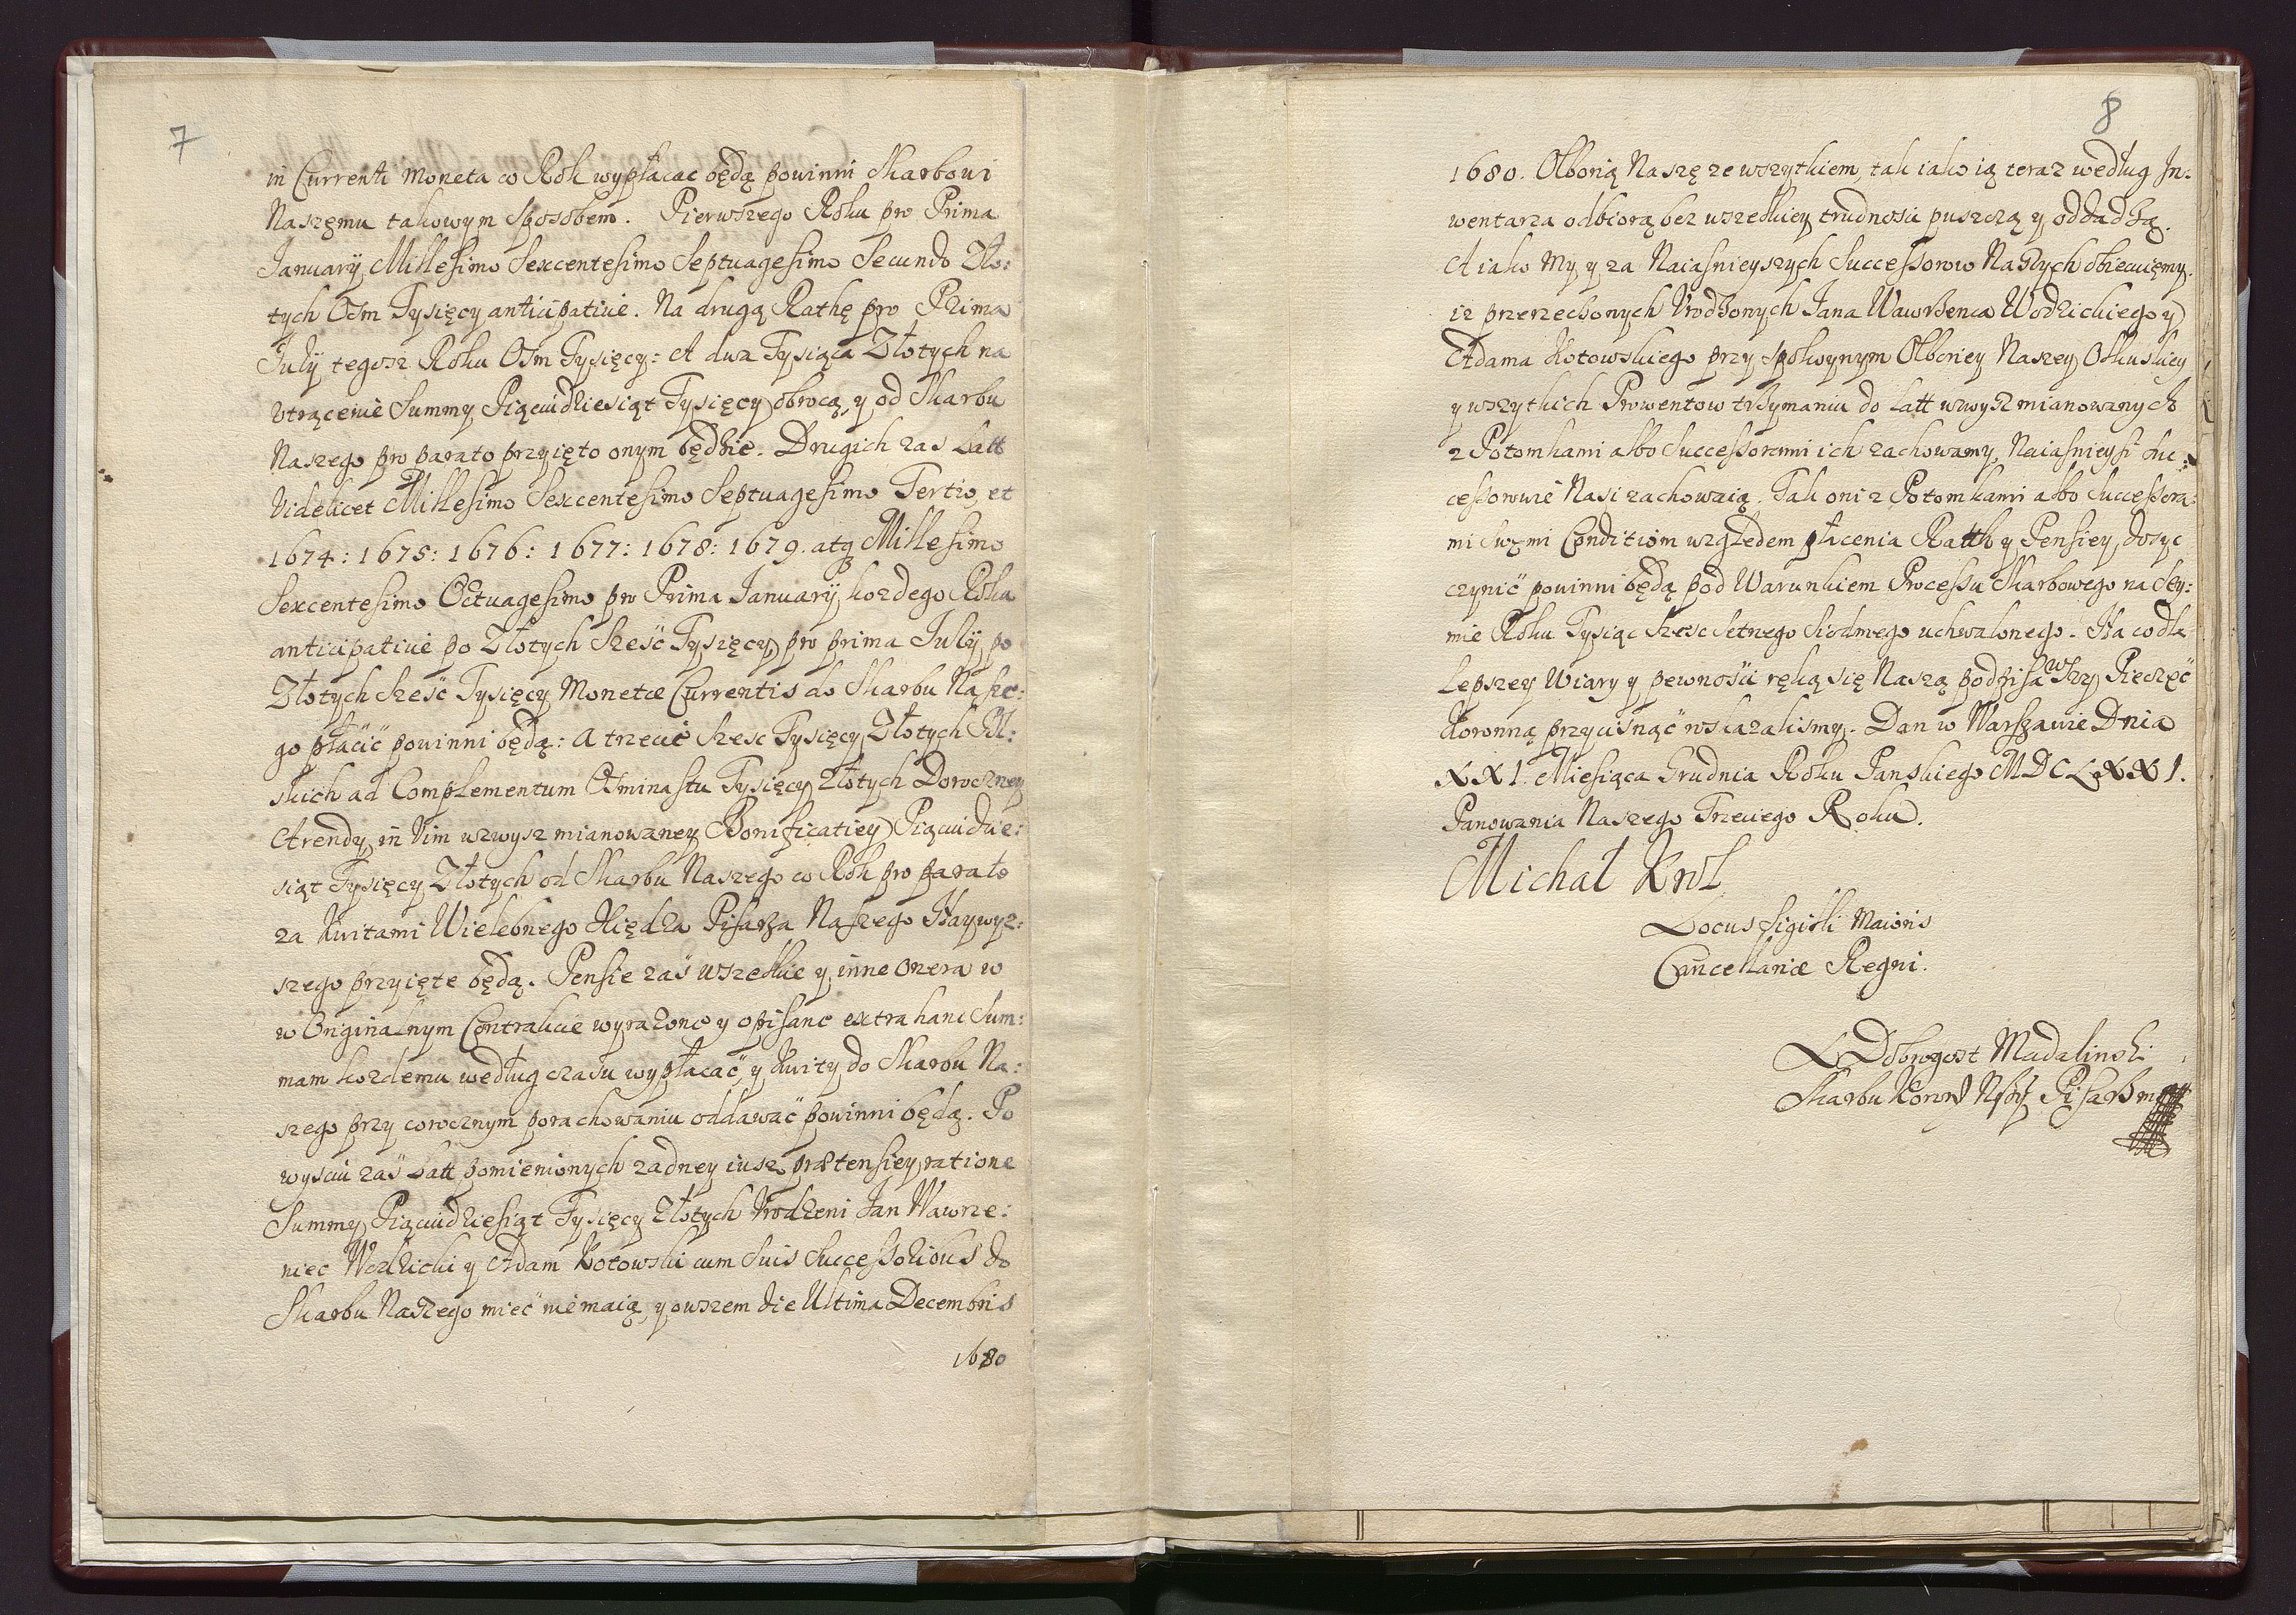 7
in Currenti Moneta co Rok wypłacac będą powinni Skarbowi
Naszęmu takowym Sposobem. Pierwszego Roku pro Prima
Januarij Millesimo Sexcentesimo Septuagesimo Secundo Zło:
tych Osm Tysięcy anticipative. Na drugą Rathę pro Prima
Julij tegosz Roku Osm Tysięcy: A dwa Tysiąca Złotych na
Vtrącenie Summy Pięcudziesiąt Tysięcy obrocą, y od Skarbu
Naszego pro parato przyięto onym będzie. Drugich zas Latt
Videlicet Millesimo Sexcentesimo Septuagesimo Tertio, et
1674: 1675: 1676: 1677: 1678: 1679. atq Millesimo
Sexcentesimo Octuagesimo pro Prima Januarij kozdego Roku
anticipative po Złotych Szesć Tysięcy pro prima Julij po
Złotych Szesć Tysięcy Monetæ Currentis do Skarbu Nasze:
go płacić powinni będą: A trzecie Szesc Tysięcy Złotych Pol:
skich ad Complementum Osminastu Tysięcy Złotych Doroczney
Arendy, in Vim wzwysz mianowaney Bonificatiey Pięcudzie:
siąt Tysięcy Złotych od Skarbu Naszego co Rok pro parato
za Kwitami Wielebnego Xiędza Pisarza Naszego Naywyz:
szego przyięte będą. Pensie zaś wszelkie y inne onera w
w Originalnym Contrakcie wyrażone y opisane extra hanc Sum:
mam kozdemu według czasu wypłacać, y Kwity do Skarbu Na:
szego przy corocznym porachowaniu oddawać powinni będą. Po
wysciu zaś Latt pomienionych zadney iusz prætensiey, ratione
Summy Pięcudziesiąt Tysięcy Złotych Vrodzeni Jan Wawrze:
niec Wodzicki y Adam Kotowski cum Suis Successoribus do
Skarbu Naszego mieć nie maią, y owszem die Ultima Decembris
1680
8
1680. Olborią Naszę ze wszytkiem, tak iako ią teraz według In:
wentarza odbiorą bez wszelkiey trudnosci puszczą y oddadzą.
A iako My y za Naiasnieyszych Successorow Naszych obiecuięmy.
iz przerzeczonych Vrodzonych Jana Wawrzenca Wodzickiego y
Adama Kotowskiego przy spokoynym Olboriey Naszey Olkuskiey
y wszytkich Prowentow trzymaniu do Latt wzwysz mianowanych
z Potomkami albo Successorami ich zachowamy, Naiasnieysi Suc:
cessorowie Nasi zachowaią. Tak oni z Potomkami albo Successora:
mi Swęmi Conditiom względem płacenia Ratth y Pensiey, dosyc
czynić powinni będą pod Warunkiem Processu Skarbowego na Sey:
mie Roku Tysiąc Szesc Setnego Siodmego uchwalonego. Na co dla
Lepszey Wiary y pewnosci ręką się Naszą podpisawszy Pieczęć
Koronną przycisnąć wskazalismy. Dan w Warszawie Dnia
XXI. Miesiąca Grudnia Roku Panskiego MDCLXXI.
Panowania Naszego Trzeciego Roku.
Michał Krol
Locus Sigilli Maioris
Cancellariæ Regni.
L Dobrogost Madalinski
Skarbu Koron Pisarz